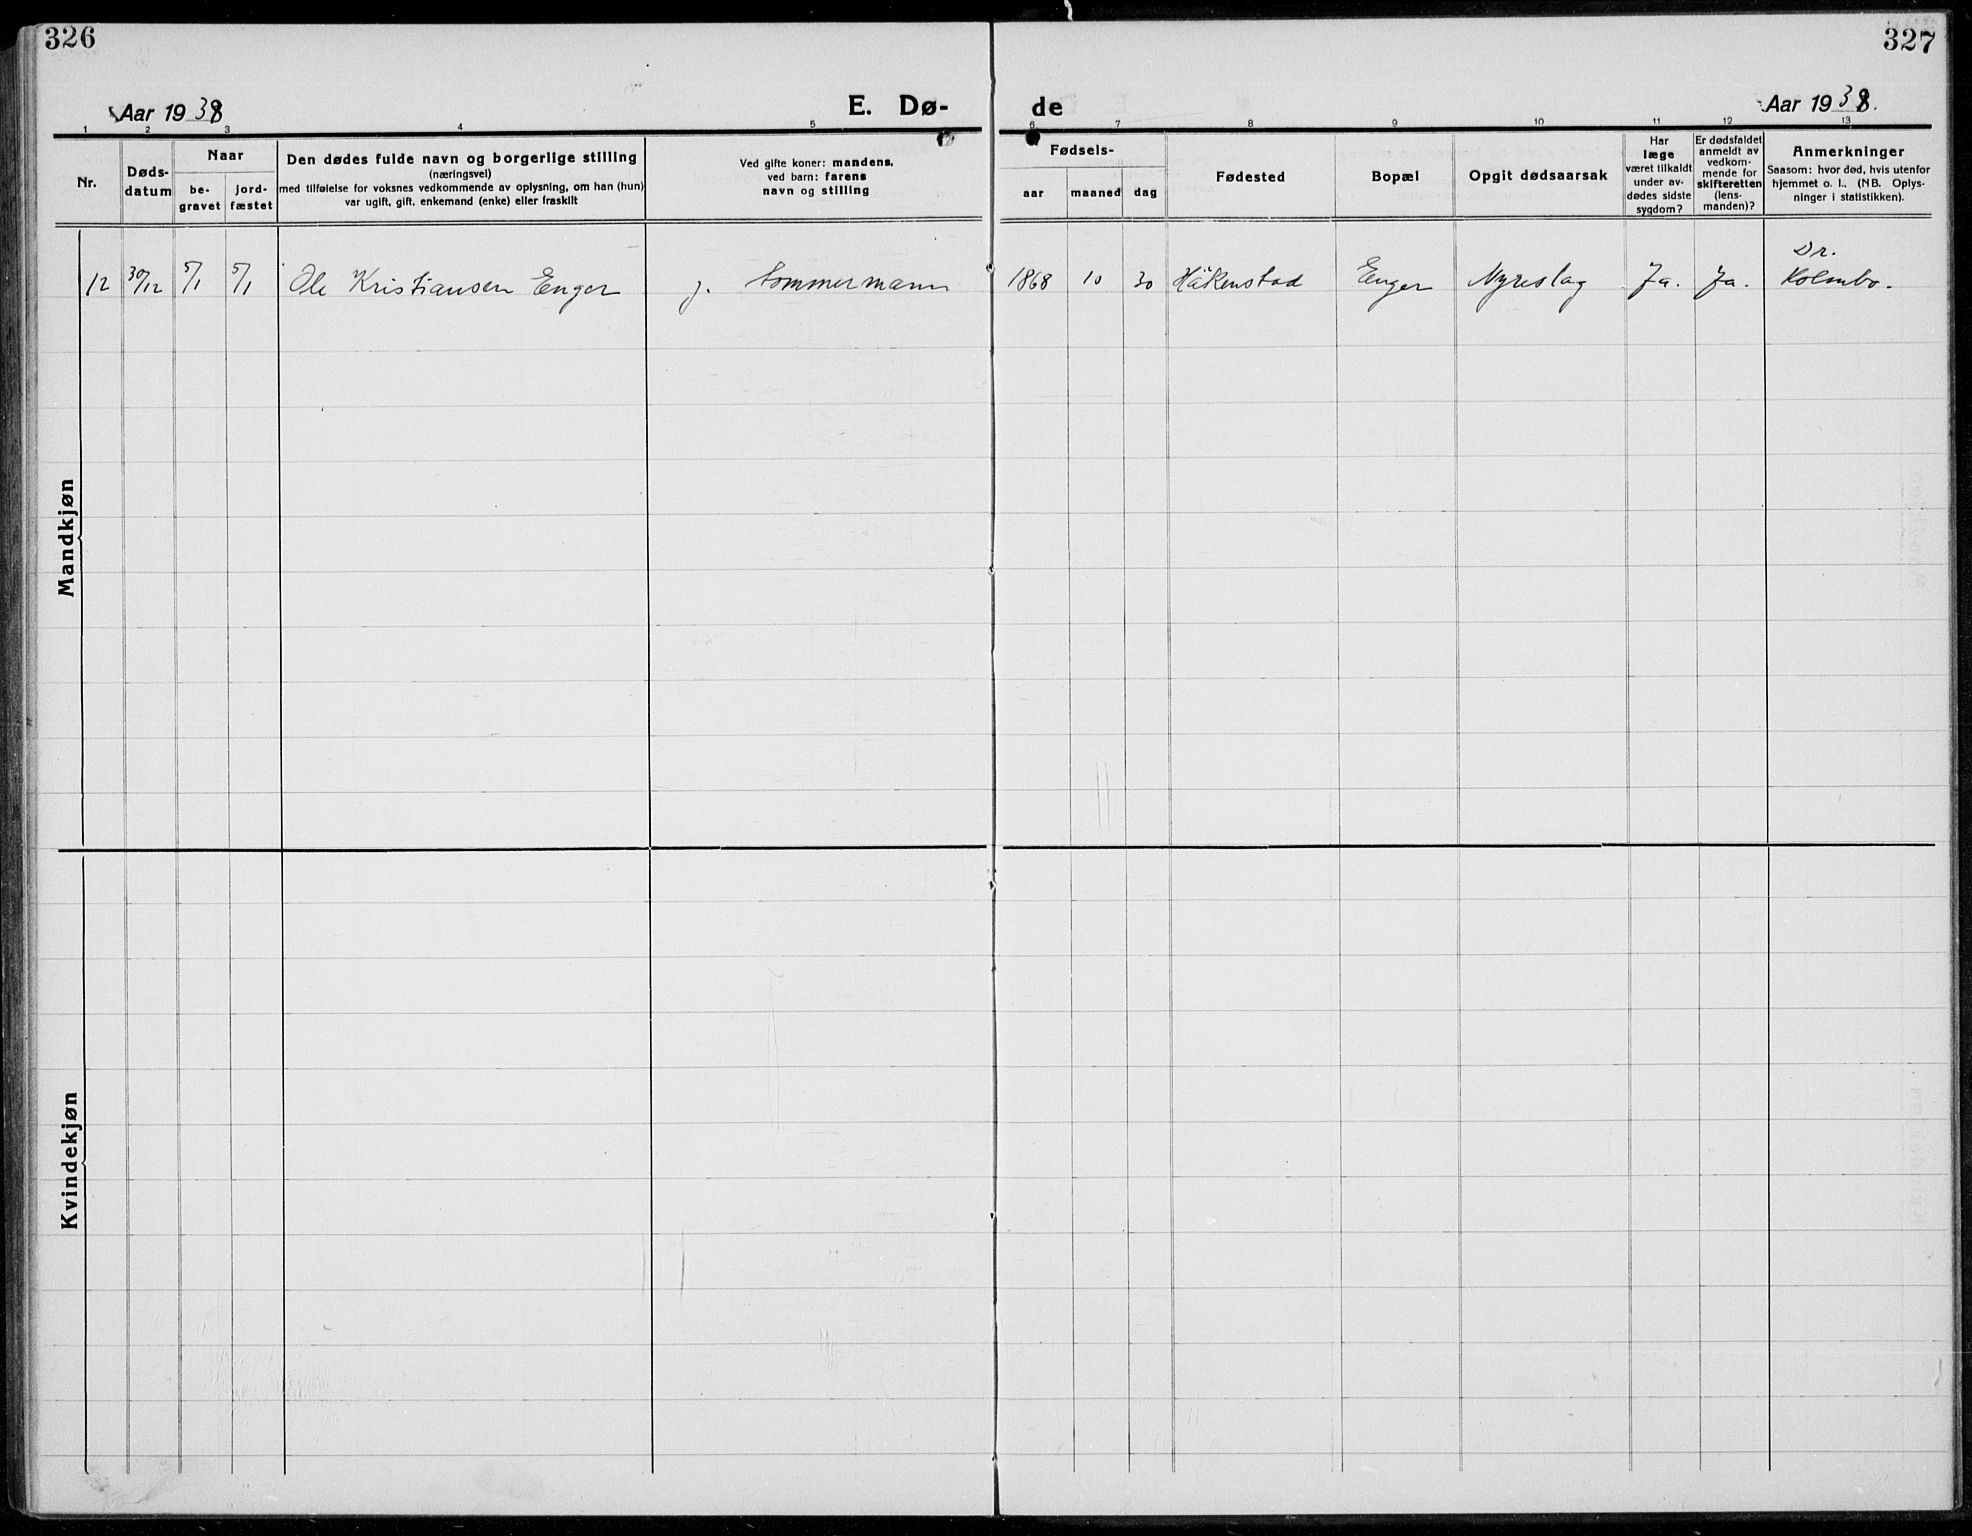 326
327
Aar 1938
E. Dø-
de
Aar 1938.
1 2 3 4 5 6 7 8 9 10 11 12 13
Nr.
Døds-
datum
Naar
be-
gravet
jord-
fæstet
Den dødes fulde navn og borgerlige stilling
(næringsvei)
med tilføielse for voksnes vedkommende av oplysning, om han (hun)
var ugift, gift, enkemand (enke) eller fraskilt
Ved gifte koner: mandens,
ved barn: farens
navn og stilling
Fødsels-
aar maaned dag
Fødested
Bopæl
Opgit dødsaarsak
Har
læge
været tilkaldt
under av-
dødes sidste
sygdom?
Er dødsfaldet
anmeldt av
vedkom-
mende for
skifteretten
(lens-
manden)?
Anmerkninger
Saasom: hvor død, hvis utenfor
hjemmet o. l.. (NB. Oplys-
ninger i statistikken).
Dr.
12 30/12 5/1 5/1 Ole Kristiansen Enger g. tømmermann 1868 10 30 Håkenstad Enger Nyreslag Ja. Ja. Kolmbo.
Mandkjøn
Kvindekjøn